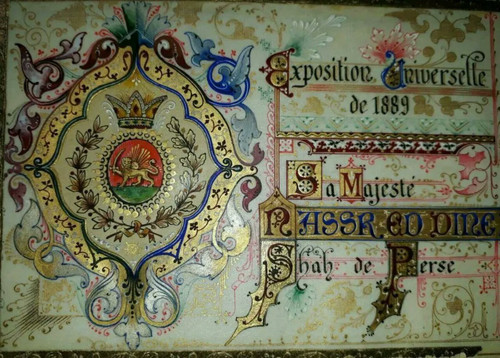 Exposition Universelle
de 1889
Sa Majesté
NASSR. ED DINE
Shah de Perse